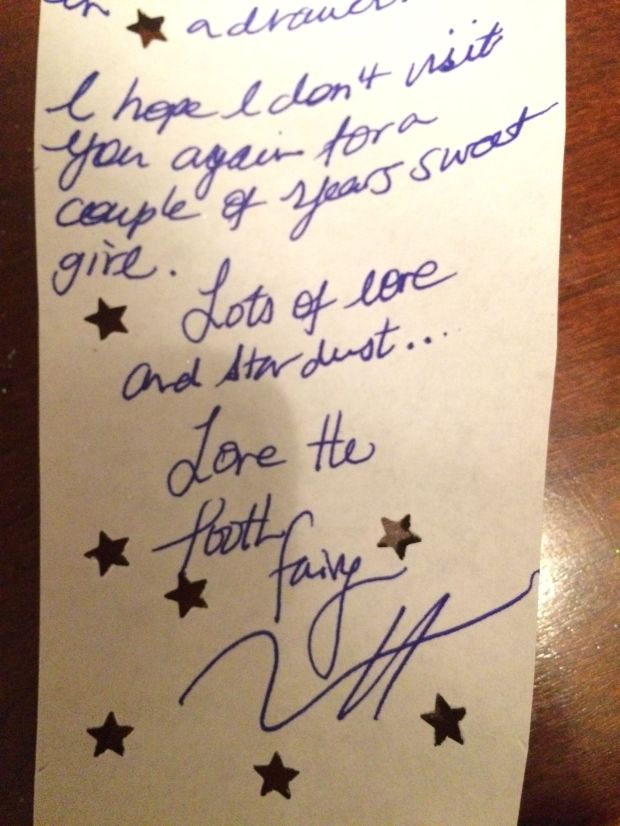 in advance
I hope I don't visit
you again for a
couple of years sweet
girl.
Lots of love
and stardust...
Love the
Tooth
fairy